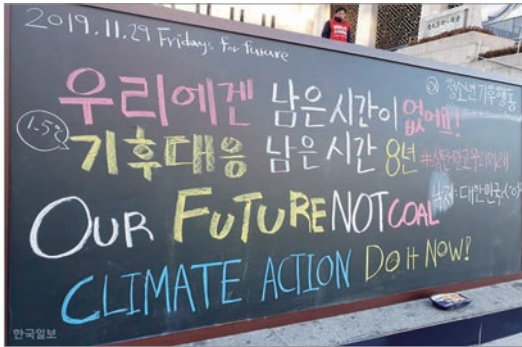 2019.11.29 Fridays for future
우리에겐 남은시간이 없어요!
청소년기후행동
1.5℃
기후대응 남은시간 8년
OUR FUTURE NOT COAL
CLIMATE ACTION Do it Now!
한국일보